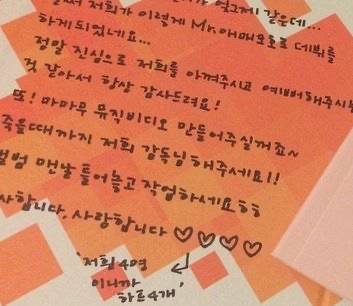 엊그제 같은데...
저희가 이렇게 Mr.애매모호로 데뷔를
하게되었네요...
정말 진심으로 저희를 아껴주시고 예뻐해주시는
것 같아서 항상 감사드려요!
또! 마마무 뮤직비디오 만들어주실꺼죠~
죽을때까지 저희 감독님해주세요!!
맨날 틀어놓고 작업하세요ㅎㅎ
사합니다. 사랑합니다 ♡♡♡♡
'저희4명
이니까
하트4개'